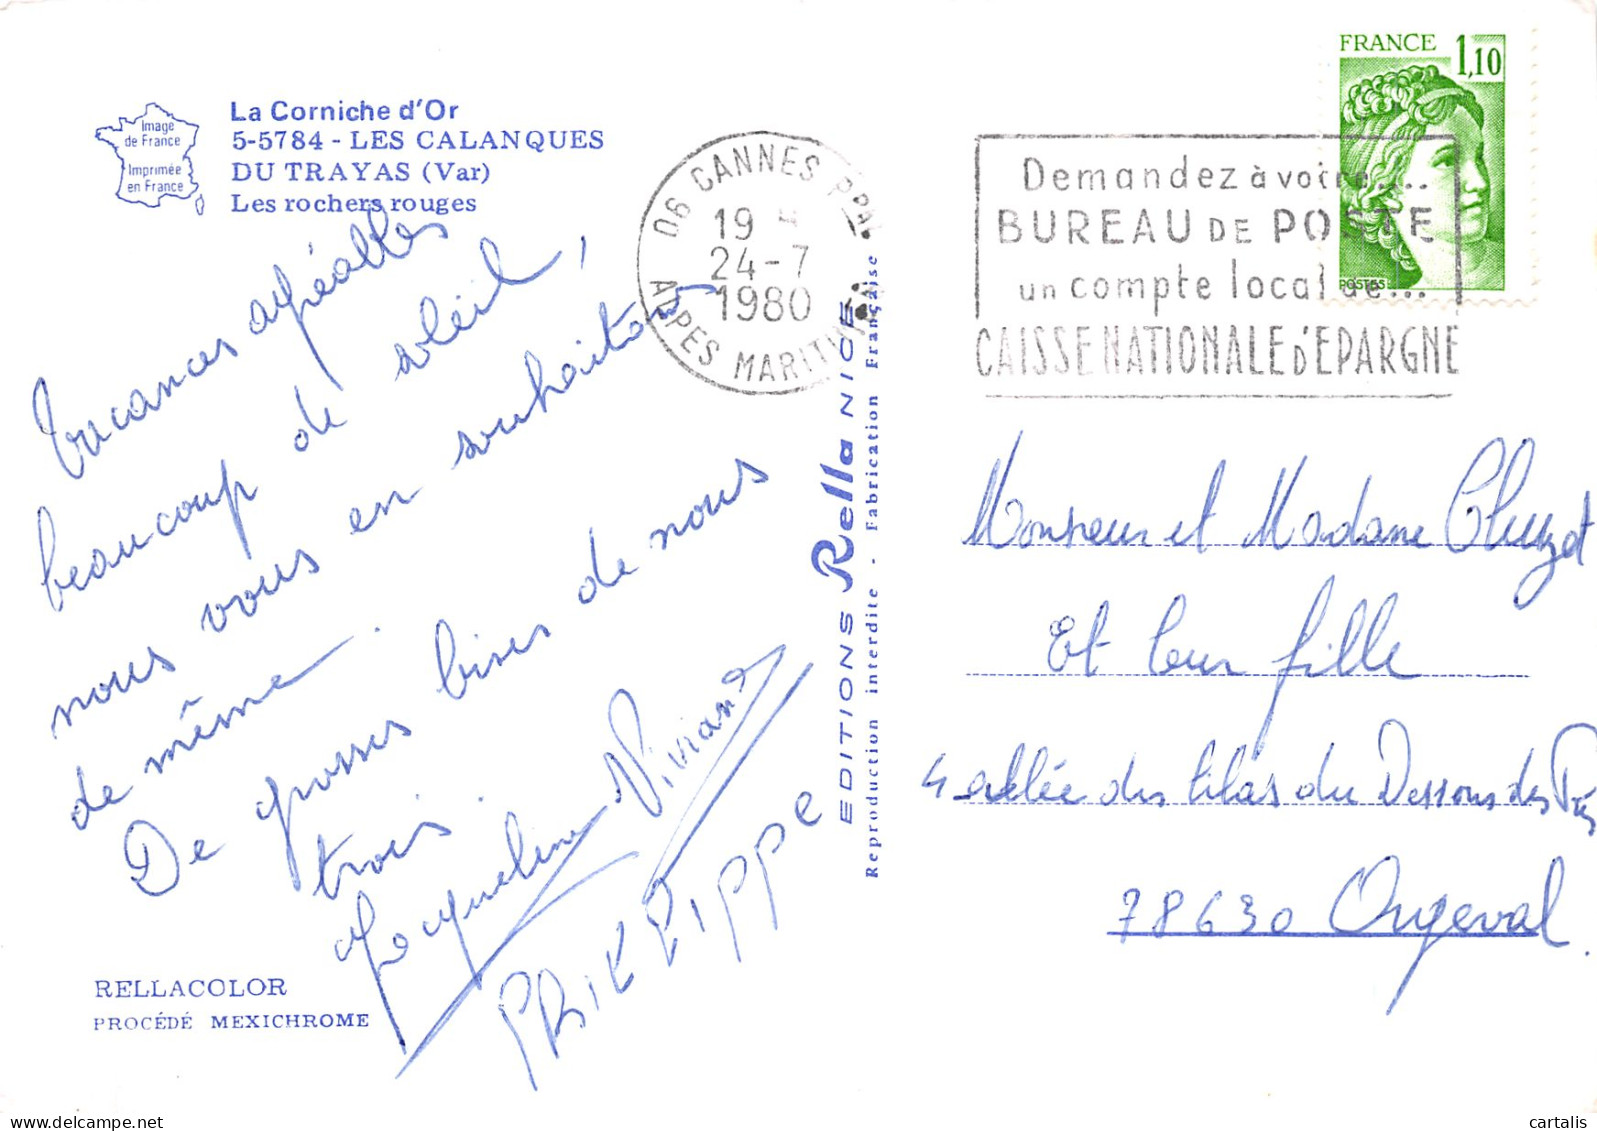 La Corniche d'Or
5-5784 - LES CALANQUES
DU TRAYAS (Var)
Les rochers rouges
Image
de France
Imprimée
en France
Vacances agréables
beaucoup de soleil,
nous vous en souhaitons
de même.
De grosses bises de nous
trois
Jacqueline Viviane
PHILIPPE
RELLACOLOR
PROCÉDÉ MEXICHROME
EDITIONS Rella NICE
Reproduction interdite - Fabrication Française
06 CANNES PPAL
19 H
24-7
1980
ALPES MARITIMES
Demandez à votre....
BUREAU DE POSTE
un compte local de...
CAISSE NATIONALE D'EPARGNE
FRANCE 1,10
POSTES
Monsieur et Madame Cluzot
Et leur fille
4 allée des lilas du Dessous des Prés
78630 Orgeval.
cartalis